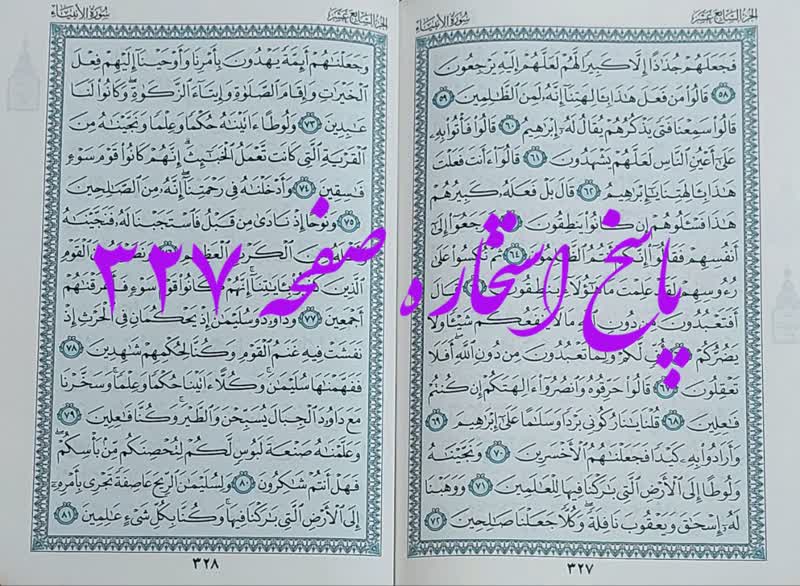 الجزء السابع عشر
سورة الأنبياء
فَجَعَلَهُمْ جُذَاذًا إِلَّا كَبِيرًا لَّهُمْ لَعَلَّهُمْ إِلَيْهِ يَرْجِعُونَ
٥٨ قَالُوا مَن فَعَلَ هَٰذَا بِـَٔالِهَتِنَا إِنَّهُۥ لَمِنَ ٱلظَّٰلِمِينَ ٥٩
قَالُوا سَمِعْنَا فَتًى يَذْكُرُهُمْ يُقَالُ لَهُۥٓ إِبْرَٰهِيمُ ٦٠ قَالُوا فَأْتُوا بِهِۦ
عَلَىٰٓ أَعْيُنِ ٱلنَّاسِ لَعَلَّهُمْ يَشْهَدُونَ ٦١ قَالُوٓا ءَأَنتَ فَعَلْتَ
هَٰذَا بِـَٔالِهَتِنَا يَٰٓإِبْرَٰهِيمُ ٦٢ قَالَ بَلْ فَعَلَهُۥ كَبِيرُهُمْ
هَٰذَا فَسْـَٔلُوهُمْ إِن كَانُوا يَنطِقُونَ فَرَجَعُوٓا إِلَىٰٓ
أَنفُسِهِمْ فَقَالُوٓا إِنَّكُمْ أَنتُمُ ٱلظَّٰلِمُونَ ٦٤ ثُمَّ نُكِسُوا عَلَىٰ
رُءُوسِهِمْ لَقَدْ عَلِمْتَ مَا هَٰٓؤُلَآءِ يَنطِقُونَ قَالَ
أَفَتَعْبُدُونَ مِن دُونِ ٱللَّهِ مَا لَا يَنفَعُكُمْ شَيْـًٔا وَلَا
يَضُرُّكُمْ أُفٍّ لَّكُمْ وَلِمَا تَعْبُدُونَ مِن دُونِ ٱللَّهِ أَفَلَا
تَعْقِلُونَ ٦٧ قَالُوا حَرِّقُوهُ وَٱنصُرُوٓا ءَالِهَتَكُمْ إِن كُنتُمْ
فَٰعِلِينَ ٦٨ قُلْنَا يَٰنَارُ كُونِي بَرْدًا وَسَلَٰمًا عَلَىٰٓ إِبْرَٰهِيمَ ٦٩
وَأَرَادُوا بِهِۦ كَيْدًا فَجَعَلْنَٰهُمُ ٱلْأَخْسَرِينَ ٧٠ وَنَجَّيْنَٰهُ
وَلُوطًا إِلَى ٱلْأَرْضِ ٱلَّتِي بَٰرَكْنَا فِيهَا لِلْعَٰلَمِينَ ٧١ وَوَهَبْنَا
لَهُۥٓ إِسْحَٰقَ وَيَعْقُوبَ نَافِلَةً وَكُلًّا جَعَلْنَا صَٰلِحِينَ ٧٢
٣٢٧
الجزء السابع عشر
سورة الأنبياء
وَجَعَلْنَٰهُمْ أَئِمَّةً يَهْدُونَ بِأَمْرِنَا وَأَوْحَيْنَآ إِلَيْهِمْ فِعْلَ
ٱلْخَيْرَٰتِ وَإِقَامَ ٱلصَّلَوٰةِ وَإِيتَآءَ ٱلزَّكَوٰةِ وَكَانُوا لَنَا
عَٰبِدِينَ ٧٣ وَلُوطًا ءَاتَيْنَٰهُ حُكْمًا وَعِلْمًا وَنَجَّيْنَٰهُ مِنَ
ٱلْقَرْيَةِ ٱلَّتِي كَانَت تَّعْمَلُ ٱلْخَبَٰٓئِثَ إِنَّهُمْ كَانُوا قَوْمَ سَوْءٍ
فَٰسِقِينَ ٧٤ وَأَدْخَلْنَٰهُ فِي رَحْمَتِنَآ إِنَّهُۥ مِنَ ٱلصَّٰلِحِينَ
٧٥ وَنُوحًا إِذْ نَادَىٰ مِن قَبْلُ فَٱسْتَجَبْنَا لَهُۥ فَنَجَّيْنَٰهُ
وَأَهْلَهُۥ مِنَ ٱلْكَرْبِ ٱلْعَظِيمِ ٧٦ وَنَصَرْنَٰهُ مِنَ ٱلْقَوْمِ
ٱلَّذِينَ كَذَّبُوا بِـَٔايَٰتِنَآ إِنَّهُمْ كَانُوا قَوْمَ سَوْءٍ فَأَغْرَقْنَٰهُمْ
أَجْمَعِينَ ٧٧ وَدَاوُۥدَ وَسُلَيْمَٰنَ إِذْ يَحْكُمَانِ فِي ٱلْحَرْثِ إِذْ
نَفَشَتْ فِيهِ غَنَمُ ٱلْقَوْمِ وَكُنَّا لِحُكْمِهِمْ شَٰهِدِينَ ٧٨
فَفَهَّمْنَٰهَا سُلَيْمَٰنَ وَكُلًّا ءَاتَيْنَا حُكْمًا وَعِلْمًا وَسَخَّرْنَا
مَعَ دَاوُۥدَ ٱلْجِبَالَ يُسَبِّحْنَ وَٱلطَّيْرَ وَكُنَّا فَٰعِلِينَ ٧٩
وَعَلَّمْنَٰهُ صَنْعَةَ لَبُوسٍ لَّكُمْ لِتُحْصِنَكُم مِّنۢ بَأْسِكُمْ
فَهَلْ أَنتُمْ شَٰكِرُونَ ٨٠ وَلِسُلَيْمَٰنَ ٱلرِّيحَ عَاصِفَةً تَجْرِي بِأَمْرِهِۦٓ
إِلَى ٱلْأَرْضِ ٱلَّتِي بَٰرَكْنَا فِيهَا وَكُنَّا بِكُلِّ شَيْءٍ عَٰلِمِينَ ٨١
٣٢٨
پاسخ استخاره صفحه ۳۲۷